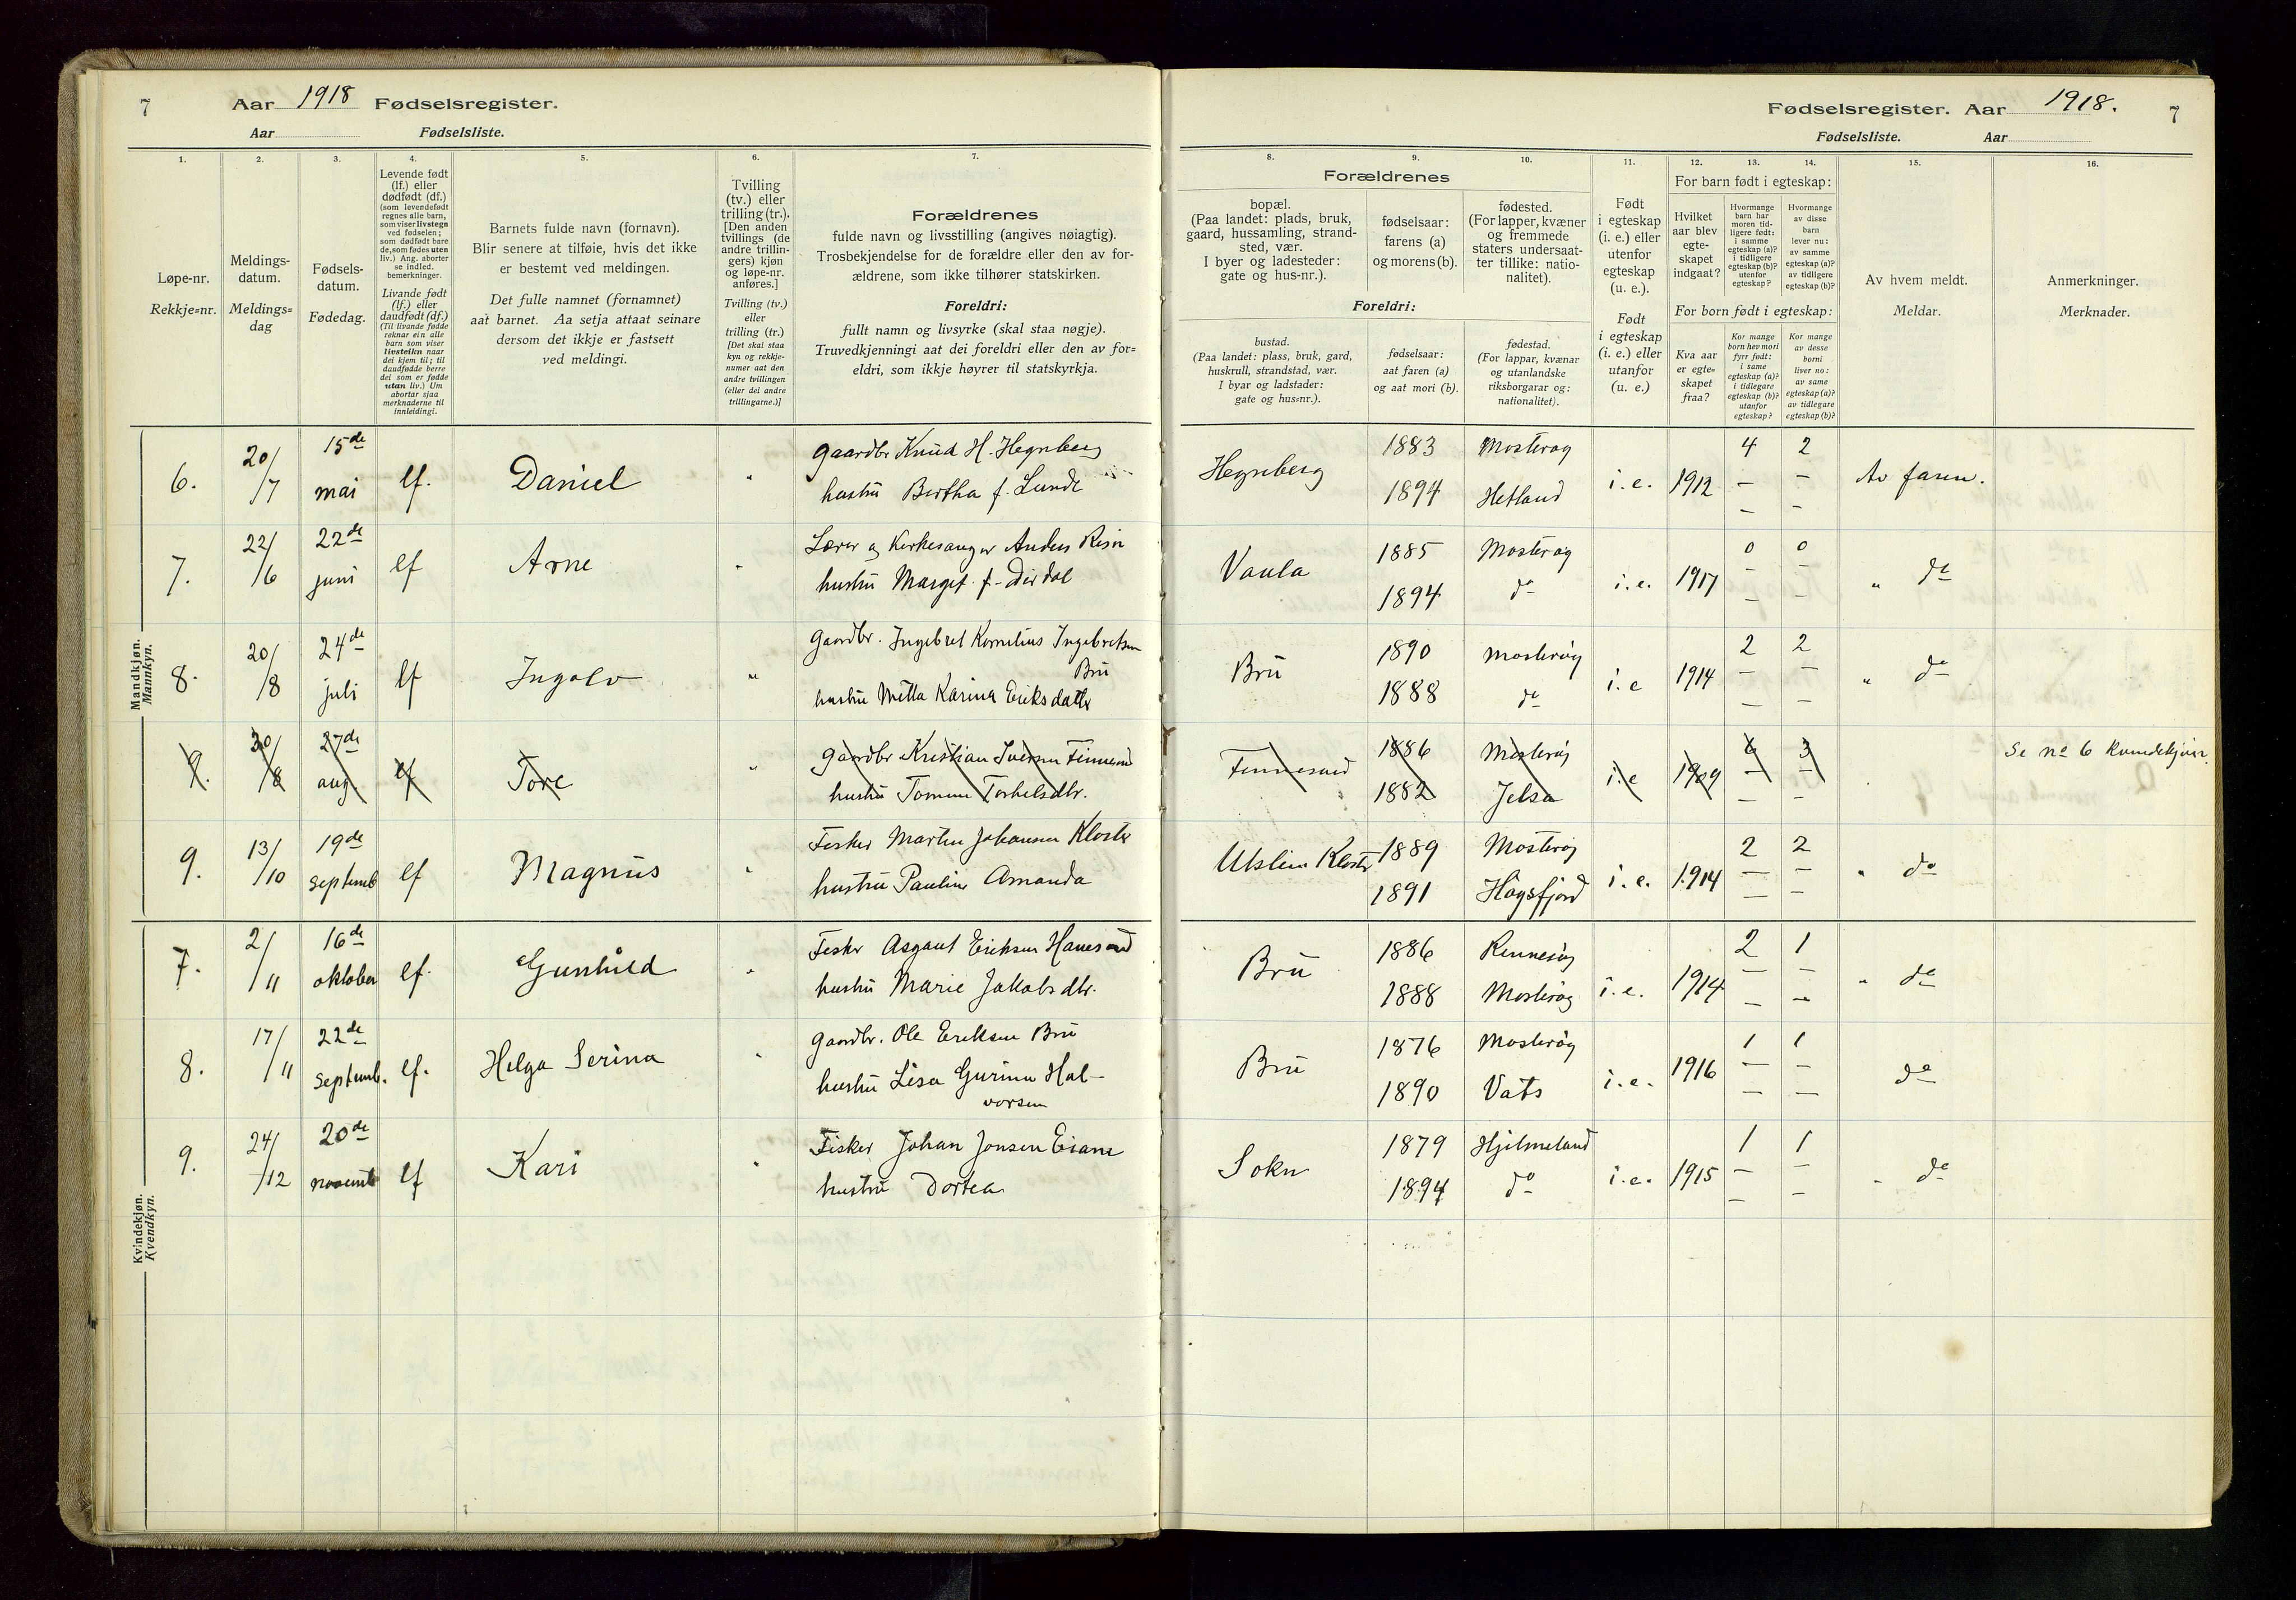 7 Aar 1918 Fødselsregister.
Aar Fødselsliste.
1. 2. 3. 4. 5. 6. 7.
Løpe-nr.
Rekkje=nr.
Meldings-
datum.
Meldings=
dag
Fødsels-
datum.
Fødedag.
Levende født
(lf.) eller
dødfødt (df.)
(som levendefødt
regnes alle barn,
som viser livstegn
ved fødselen;
som dødfødt bare
de, som fødes uten
liv.) Ang. aborter
se indled.
bemerkninger.
Livande født
(lf.) eller
daudfødt (df.)
(Til livande fødde
reknar ein alle
barn som viser
livsteikn naar
dei kjem til; til
daudfødde berre
dei som er fødde
utan liv.) Um
abortar sjaa
merknaderne til
innleidingi.
Barnets fulde navn (fornavn).
Blir senere at tilføie, hvis det ikke
er bestemt ved meldingen.
Det fulle namnet (fornamnet)
aat barnet. Aa setja attaat seinare
dersom det ikkje er fastsett
ved meldingi.
Tvilling
(tv.) eller
trilling (tr.).
[Den anden
tvillings (de
andre trillin-
gers) kjøn
og løpe-nr.
anføres.]
Tvilling (tv.)
eller
trilling (tr.)
[Det skal staa
kyn og rekkje-
numer aat den
andre tvillingen
(eller dei andre
trillingarne.)]
Forældrenes
fulde navn og livsstilling (angives nøiagtig).
Trosbekjendelse for de forældre eller den av for-
ældrene, som ikke tilhører statskirken.
Foreldri:
fullt namn og livsyrke (skal staa nøgje).
Truvedkjenningi aat dei foreldri eller den av for=
eldri, som ikkje høyrer til statskyrkja.
Mandkjøn.
Mannkyn.
6. 20/7 15de mai lf. Daniel " Gaardbr Knud H. Hegreberg
hustru Bertha f. Lunde
7. 22/6 22de juni lf Arne " Lærer og Kirkesanger Anders Resin
hustru Marget f. Dirdal
8. 20/8 24de juli lf Ingolv " Gaardbr. Ingebret Kornelius Ingebretsen
Bru
hustru Metta Karina Eriksdatter
9. 30/8 27de aug. lf Tore " Gaardbr Kristian Iversen Finnesand
hustru Tomine Torkelsdtr.
9. 13/10 19de septemb lf Magnus " Fisker Martin Johansen Kloster
hustru Pauline Amanda
Kvindekjøn.
Kvendkyn.
7. 2/11 16de oktober lf. Gunhild " Fisker Asgaut Eriksen Hanesand
hustru Marie Jakobsdtr.
8. 17/11 22de septemb. lf. Helga Serina " Gaardbr. Ole Eriksen Bru
hustru Lisa Gurine Hal-
vorsen
9. 24/12 20de novemb lf Kari " Fisker Johan Jonsen Eiane
hustru Dortea
Fødselsregister. Aar 1918. 7
Fødselsliste. Aar
8. 9. 10. 11. 12. 13. 14. 15. 16.
Forældrenes
bopæl.
(Paa landet: plads, bruk,
gaard, hussamling, strand-
sted, vær.
I byer og ladesteder:
gate og hus-nr.).
fødselsaar:
farens (a)
og morens (b).
fødested.
(For lapper, kvæner
og fremmede
staters undersaat-
ter tillike: natio-
nalitet).
Foreldri:
bustad.
(Paa landet: plass, bruk, gard,
huskrull, strandstad, vær.
I byar og ladstader:
gate og hus=nr.).
fødselsaar:
aat faren (a)
og aat mori (b).
fødestad.
(For lappar, kvænar
og utanlandske
riksborgarar og:
nationalitet).
Født
i egteskap
(i. e.) eller
utenfor
egteskap
(u. e.).
Født
i egteskap
(i. e.) eller
utanfor
(u. e.)
For barn født i egteskap:
Hvilket
aar blev
egte-
skapet
indgaat?
Hvormange
barn har
moren tid-
ligere født:
i samme
egteskap (a)?
i tidligere
egteskap (b)?
utenfor
egteskap?
Hvormange
av disse
barn
lever nu:
av samme
egteskap (a)?
av tidligere
egteskap (b)?
For born født i egteskap:
Kva aar
er egte=
skapet
fraa?
Kor mange
born hev mori
fyrr født:
i same
egteskap (a)?
i tidlegare
egteskap (b)?
utanfor
egteskap?
Kor mange
av desse
borni
liver no:
av same
egteskap (a)?
av tidlegare
egteskap (b)?
Av hvem meldt.
Meldar.
Anmerkninger.
Merknader.
Hegreberg 1883 Mosterøy 4 2
1894 Hetland i.e. 1912 — — Av faren.
— —
Vaula 1885 Mosterøy 0 0
1894 do i.e. 1917 — — " do
— —
Bru 1890 Mosterøy 2 2
1888 do i.e 1914 — — " do
— —
Finnesand 1886 Mosterøy 6 3 Se no 6 kvindekjøn.
1882 Jelsa i.e 1909 — —
— —
Utstein Kloster 1889 Mosterøy 2 2
1891 Høgsfjord i.e. 1914 — — " do
— —
Bru 1886 Rennesøy 2 1
1888 Mosterøy i.e. 1914 — — " do
— —
Bru 1876 Mosterøy 1 1
1890 Vats i.e. 1916 — — do
— —
Sokn 1879 Hjelmeland 1 1
1894 do i.e. 1915 — — " do
— —